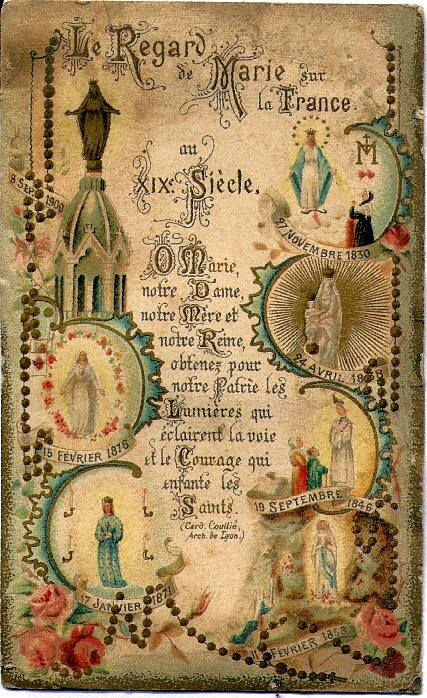 Le Regard
de Marie sur
la France.
au
XIXe Siècle.
8 SEP. 1900
27 NOVEMBRE 1830
M
O Marie,
notre Dame,
notre Mère et
notre Reine,
obtenez pour
notre Patrie les
Lumières qui
éclairent la voie
et le Courage qui
enfante les
Saints.
(Card. Coullié,
Arch. de Lyon.)
24 AVRIL
15 FÉVRIER 1876
19 SEPTEMBRE 1846
17 JANVIER 1871
11 FÉVRIER 1858